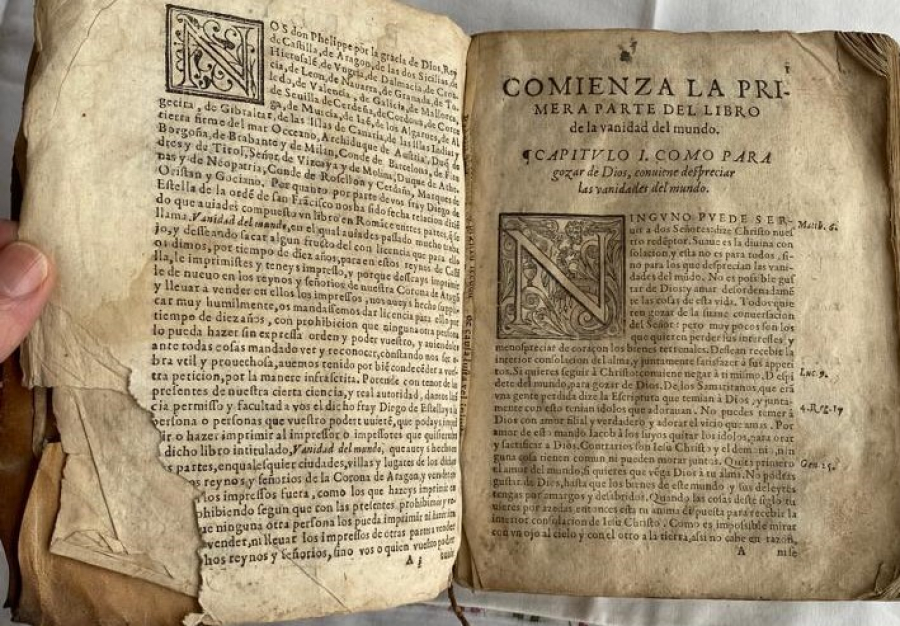 NOS don Phelippe por la gracia de Dios, Rey
de Castilla, de Aragon, de las dos Sicilias, de
Hierusalē, de Vngria, de Dalmacia, de Croa-
cia, de Leon, de Nauarra, de Granada, de To-
ledo, de Valencia, de Galicia, de Mallorca,
de Seuilla, de Cerdeña, de Cordoua, de Corce
ga, de Murcia, de Iaē, de los Algarues, de Al
gecira, de Gibraltar, de las Islas de Canaria, de las Islas Indias y
tierra firme del mar Occeano, Archiduque de Austria, Duq̄ de
Borgoña, de Brabante y de Milan, Conde de Barcelona, de Flan
dres y de Tirol, Señor de Vizcaya y de Molina, Duque de Athe
nas y de Neopatria, Conde de Rosellon y Cerdaña, Marques de
Oristan y Gociano. Por quanto por parte de vos fray Diego de
Estella de la ordē de san Frācisco nos ha sido fecha relacion diziē
do que auiades compuesto vn libro en Romāce
llama, Vanidad del mundo, en el qual auiades passado mucho traba
jo, y desseando sacar algun fructo del con licencia que para ello
os dimos, por tiempo de diez años, para en estos reynos de Casti
lla, le imprimistes y teneys impresso, y porque dessays imprimir
le de nueuo en los reynos y señorios de nuestra Corona de Aragō
y lleuar a vender en ellos los impressos, nos aueys hecho suppli
car muy humilmente, os mandassemos dar licencia para ello por
tiempo de diez años, con prohibicion que ninguna otra persona
lo pueda hazer sin expressa orden y poder vuestro, y auiendo
ante todas cosas mandado ver y reconocer, constando nos ser o-
bra vtil y prouechosa, auemos tenido por biē condecēder a vues
tra peticion, por la manera infrascrita. Porende con tenor de las
presentes de nuestra cierta ciencia, y real autoridad, damos licē
cia permisso y facultad a vos el dicho fray Diego de Estella, y a la
persona o personas que vuestro poder tuuierē, que podays impri
ir o hazer imprimir al impressor o impessores que quisierdes
dicho libro intitulado, Vanidad del mundo, que aueys hecho en
s partes, en qualesquier ciudades, villas y lugares de los dichos
os reynos y señorios de la Corona de Aragon, y vender en
los impressos fuera, como los que hazeys imprimir en
ohibiendo segun que con las presentes prohibimos y ve
ue ninguna otra persona los pueda imprimir ni hazer im
vender, ni lleuar los impressos de otras partes a vender
hos reynos y señorios, sino vos o quien vuestro poder
A
1
COMIENZA LA PRI-
MERA PARTE DEL LIBRO
de la vanidad del mundo.
¶CAPITVLO I. COMO PARA
gozar de Dios, conuiene despreciar
las vanidades del mundo.
NINGVNO PVEDE SER-
uir a dos Señores: dize Christo nues
tro redēptor. Suaue es la diuina con
solacion, y esta no es para todos, si-
no para los que desprecian las vani-
dades del mūdo. No es posible gus
tar de Dios y amar desordenadamē
te las cosas de esta vida. Todos quie
ren gozar de la suaue conuersacion
del Señor: pero muy pocos son los
que quieren perder sus interesses, y
menospreciar de coraçon los bienes terrenales. Dessean recebir la
interior consolacion del alma, y juntamente satisfazer a sus appeti
tos. Si quieres seguir à Christo: conuiene negar à ti mismo. Despi
dete del mundo, para gozar de Dios. De los Samaritanos, que erā
vna gente perdida dize la Escriptura que temian à Dios, y junta-
mente con esto tenian idolos que adorauan. No puedes temer à
Dios con amor filial y verdadero, y adorar el vicio que amas. Por
amor de esto mando Iacob à los suyos quitar los idolos, para orar
y sacrificar a Dios. Contrarios son Iesu Christo y el demonio, nin
guna cosa tienen comun ni pueden morar juntos. Quita primero
el amor del mundo, si quieres que vēga Dios à tu alma. No podras
gustar de Dios, hasta que los bienes de este mundo y sus deleytes
tengas por amargos y desabridos. Quando las cosas deste siglo tu
uieres por azedas entonces esta tu anima dispuesta para recebir la
interior consolacion de Iesu Christo. Como es impossible mirar
con vn ojo al cielo y con el otro a la tierra, assi no cabe en razon,
A
Matth. 6.
Luc. 9.
4. Reg. 17
Gen. 35.